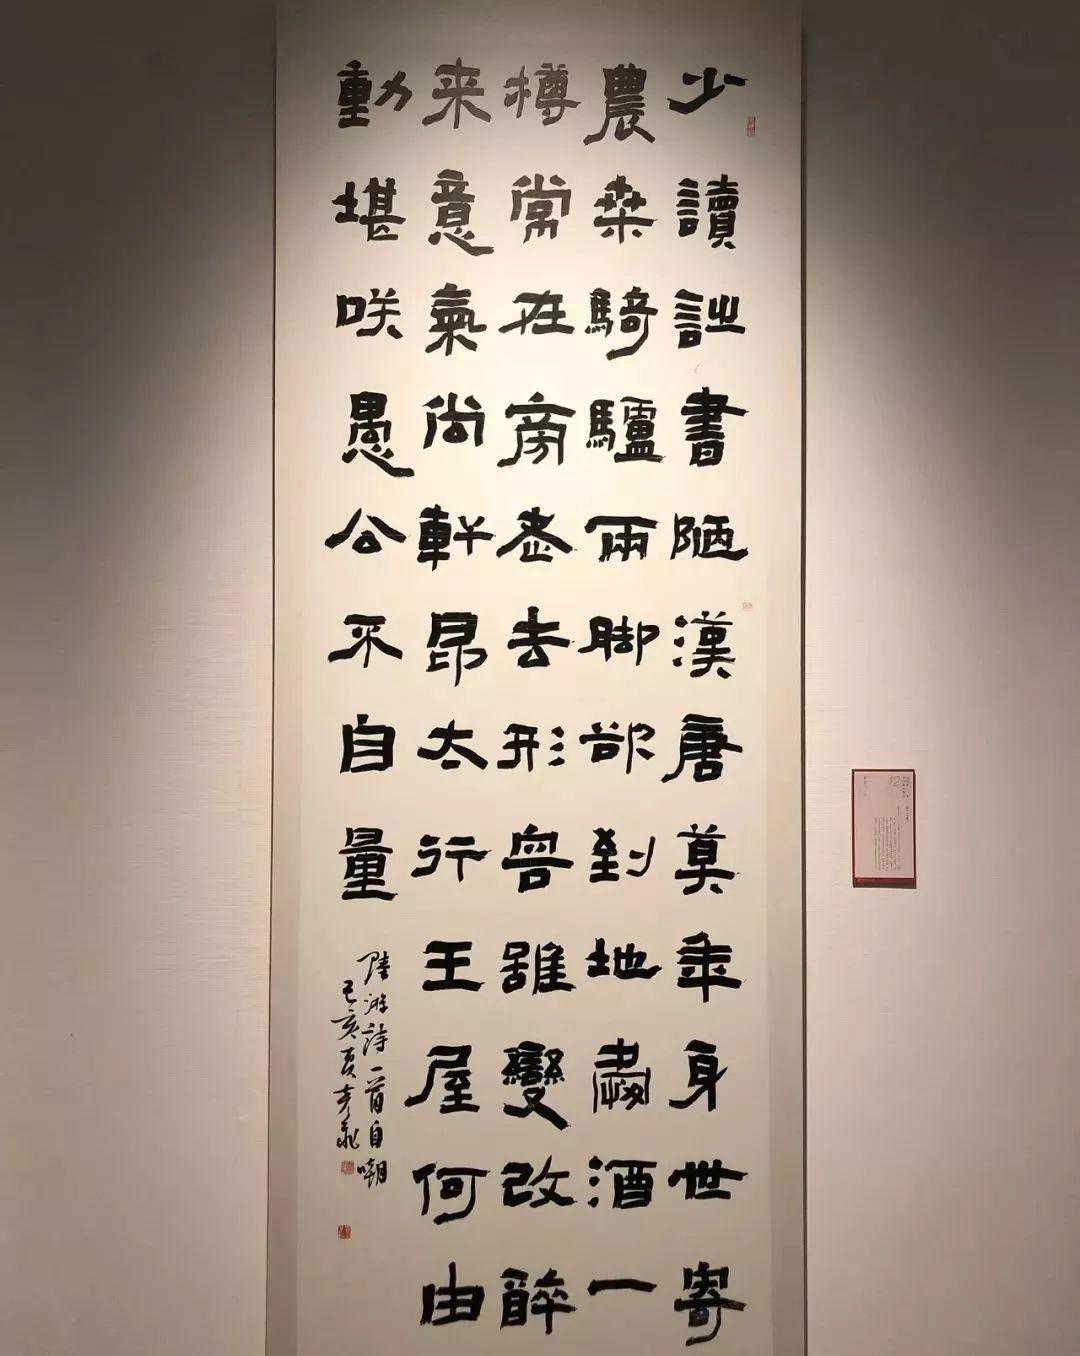 少讀詩書陋漢唐莫年身世寄
農桒騎驢兩脚欲到地酒一
樽常在旁老去形容雖變改醉
来意氣尚軒昂太行王屋何由
動堪咲愚公不自量
陸游詩一首自嘲
己亥夏